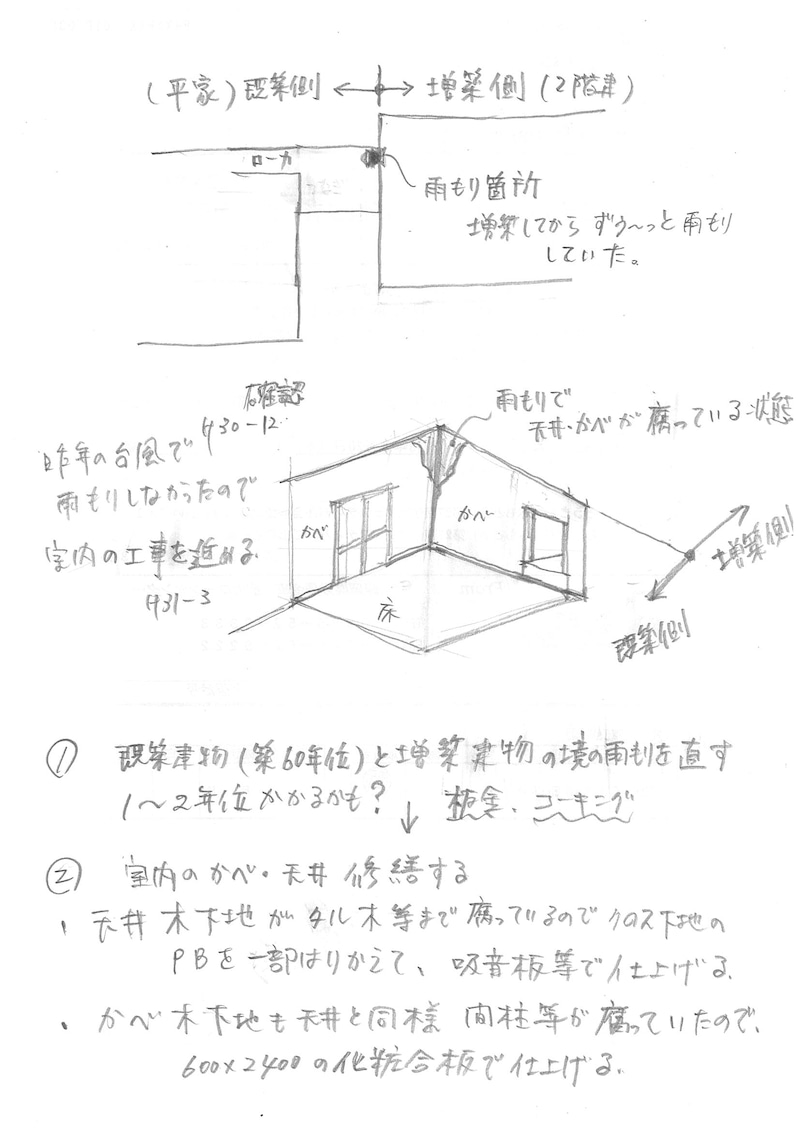 (平家)既築側 ←→ 増築側(2階建)
ローカ
雨もり箇所
増築してから ずぅ〜っと雨もり
していた。
確認
H30-12
昨年の台風で
雨もりしなかったので
室内の工事を進める.
H31-3
雨もりで
天井・かべが腐っている状態
かべ
かべ
床
増築側
既築側
① 既築建物(築60年位)と増築建物の境の雨もりを直す
1〜2年位かかるかも? ↓ 板金、コーキング
② 室内のかべ・天井 修繕する
・天井木下地がタル木等まで腐っているのでクロス下地の
PBを一部はりかえて、吸音板等で仕上げる.
・かべ木下地も天井と同様 間柱等が腐っていたので、
600×2400の化粧合板で仕上げる.